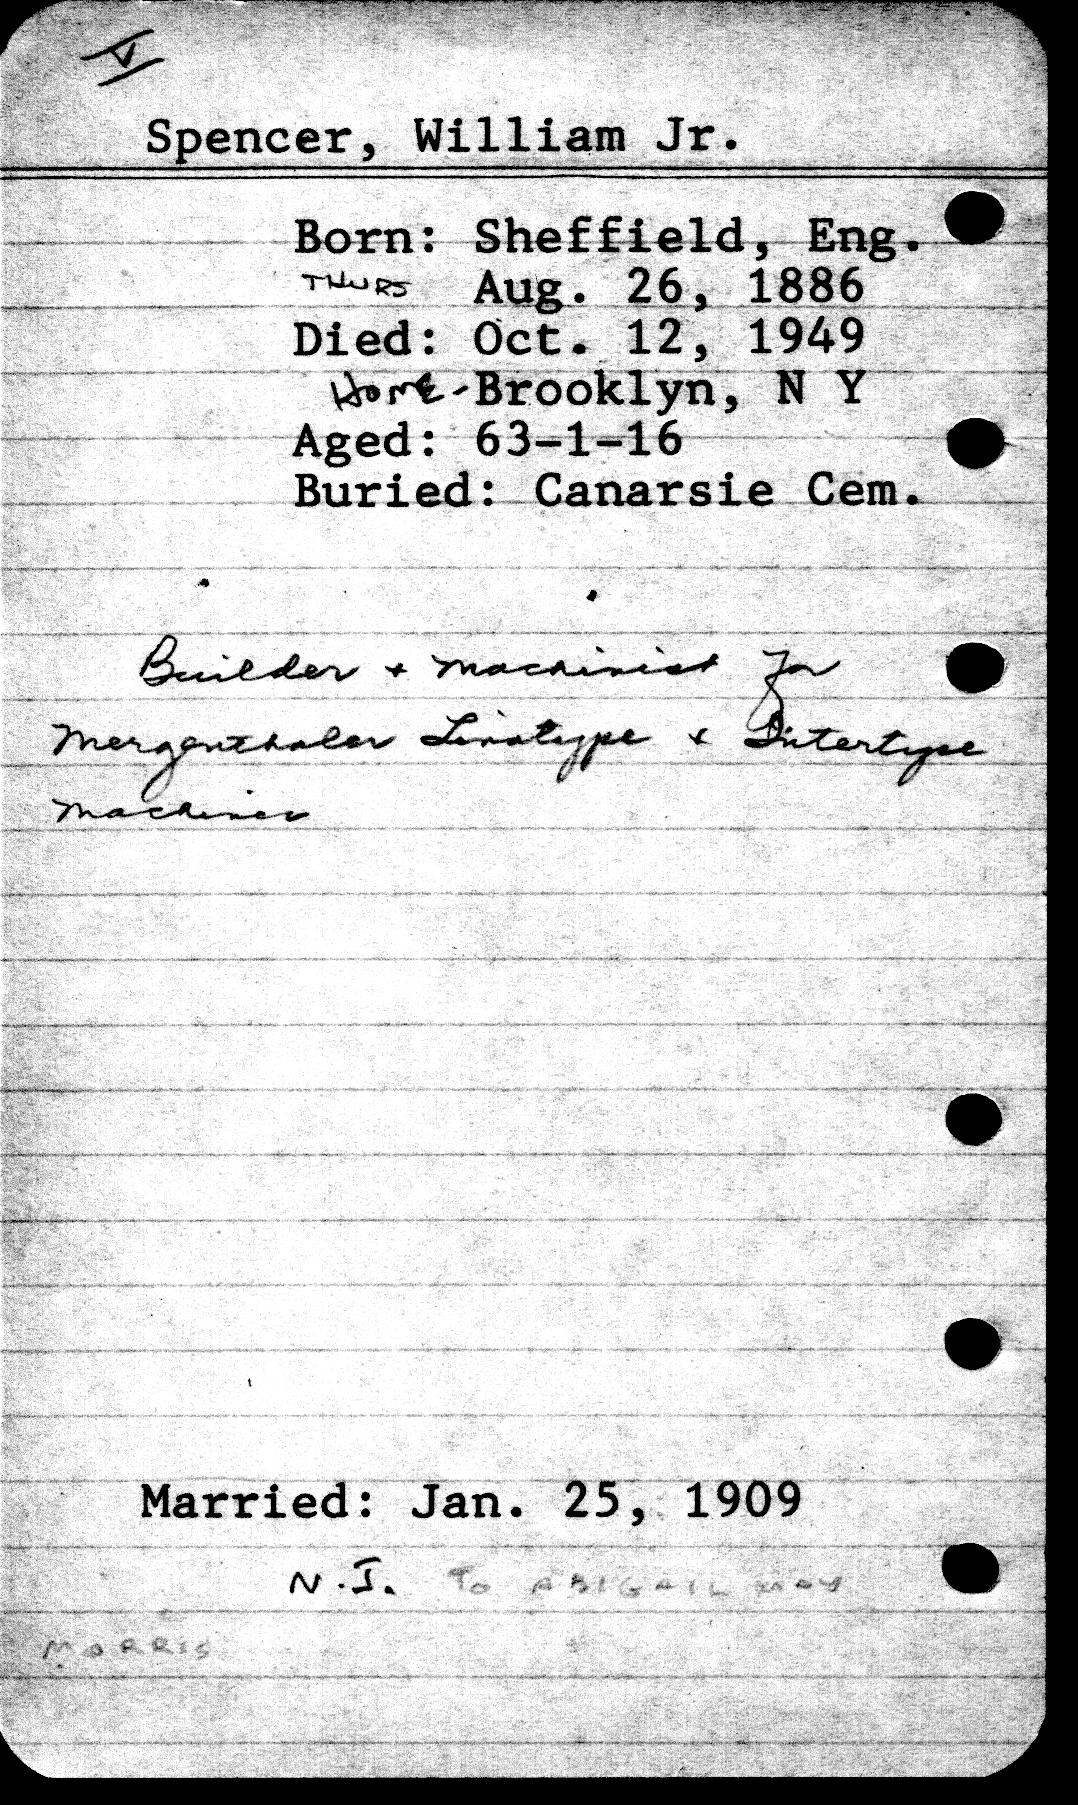 V
Spencer, William Jr.
Born: Sheffield, Eng.
THURS Aug. 26, 1886
Died: Oct. 12, 1949
HOME - Brooklyn, N Y
Aged: 63-1-16
Buried: Canarsie Cem.
Builder + machinist for
Mergenthaler Linotype + Intertype
machines
Married: Jan. 25, 1909
N.J. TO ABIGAIL MAY
MORRIS